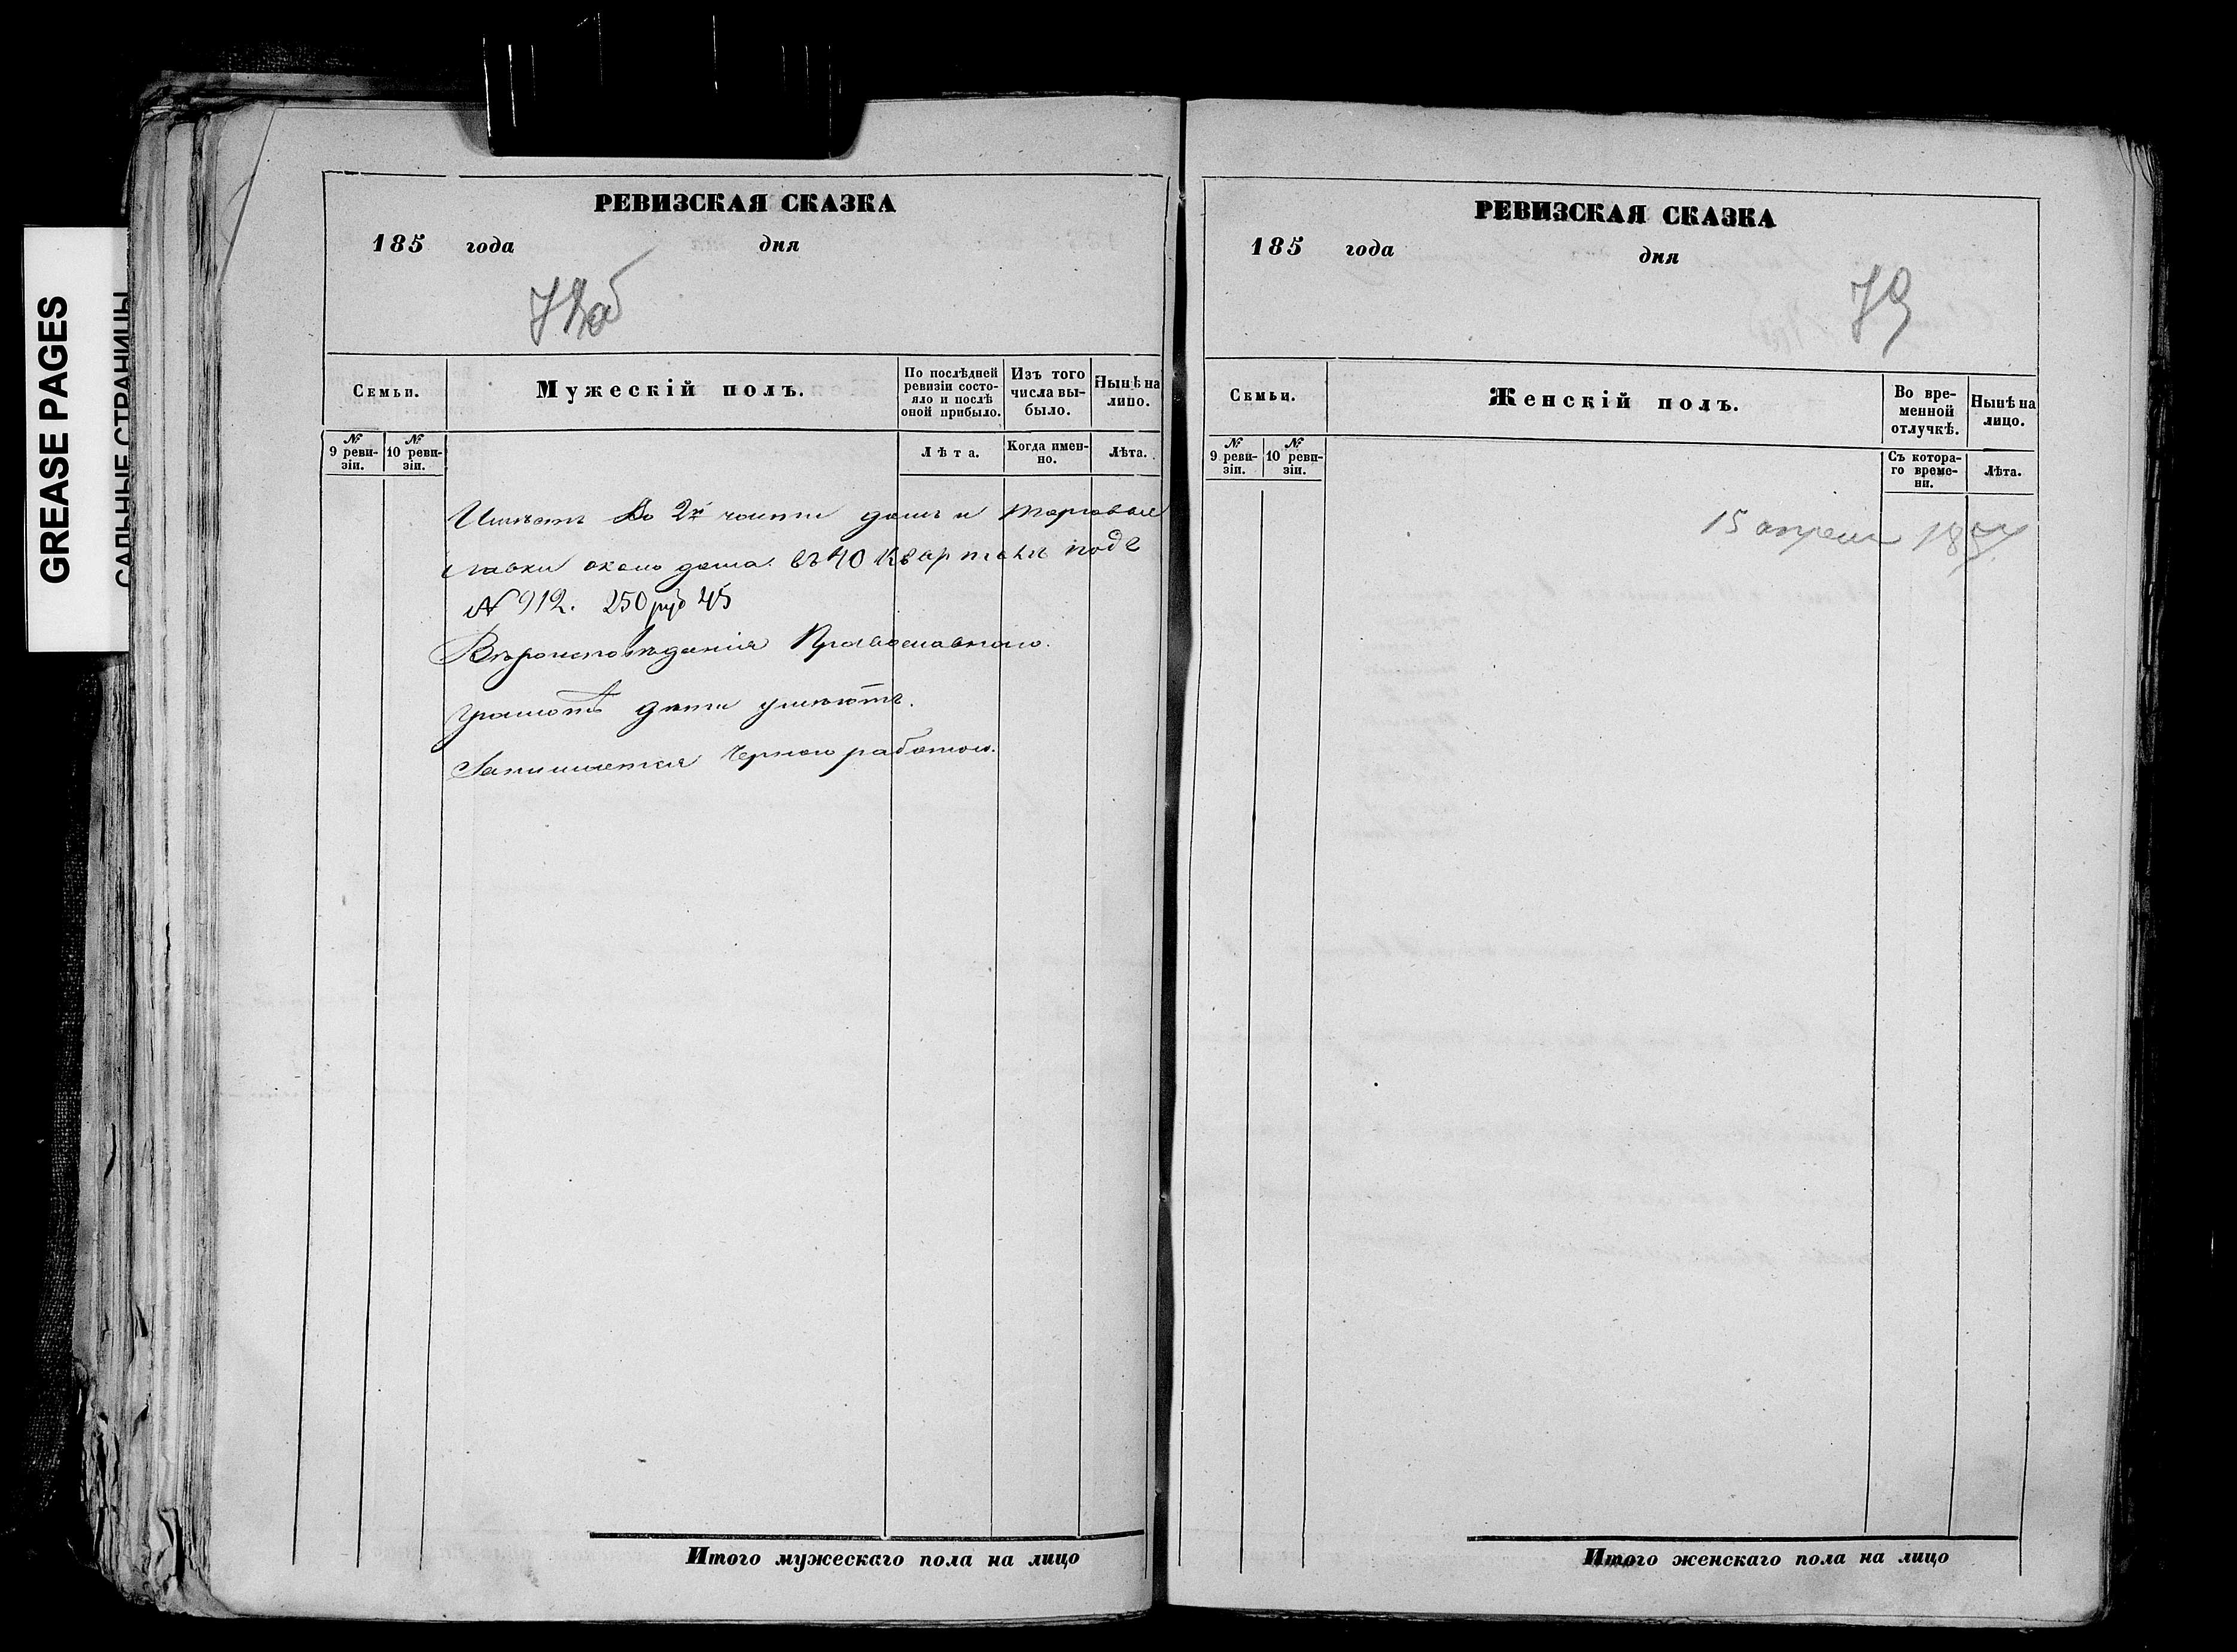 GREASE PAGES
САЛЬНЫЕ СТРАНИЦЫ
РЕВИЗСКАЯ СКАЗКА
185 года дня
Семьи.
Мужескій полъ.
По послѣдней ревизіи состояло и послѣ оной прибыло.
Изъ того числа выбыло.
Нынѣ на лицо.
№ 9 ревизіи.
№ 10 ревизіи.
Лѣта.
Когда именно.
Лѣта.
Имѣетъ Во 2й части домъ и торговыя
лавки около дома въ 40 кварталѣ подъ
№ 912. 250 руб 45
Вѣроисповѣданія Православнаго.
Грамотѣ дети умѣютъ.
Занимается Черною работою.
Итого мужескаго пола на лицо
РЕВИЗСКАЯ СКАЗКА
185 года дня
79
Семьи.
Женскій полъ.
Во временной отлучкѣ.
Нынѣ на лицо.
№ 9 ревизіи.
№ 10 ревизіи.
Съ котораго времени.
Лѣта.
15 апреля
Итого женскаго пола на лицо